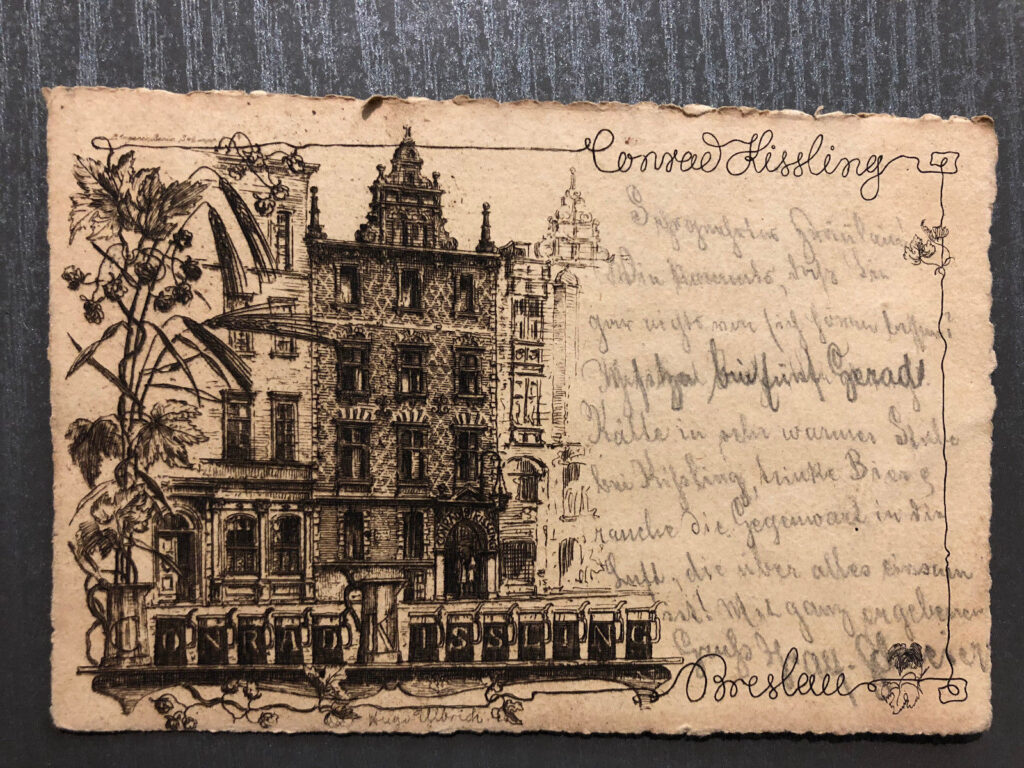 Conrad Kissling
Sehrgeehrtes Fräulein!
Wie kommts, daß Sie
gar nichts von sich hören lassen?
bei fünf Gerad
Kälte in sehr warmer Stube
bei Kißling, trinke Bier &
rauche die Gegenwart in die
Luft, die über alles einsam
ist! Mit ganz ergebenem
Gruß
ONRAD ISSLING
Breslau
Hugo Ulbrich.